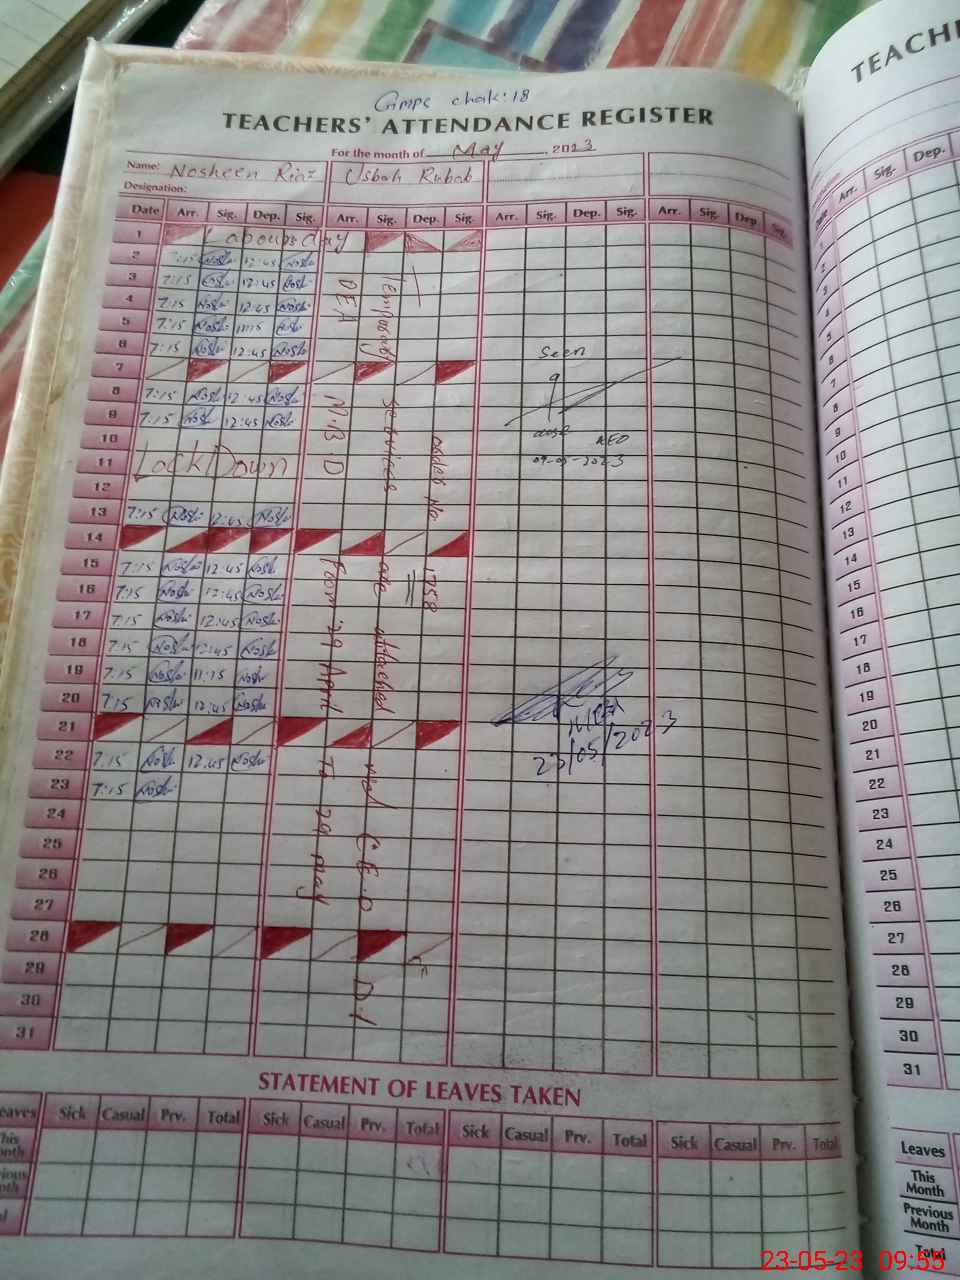 Gmps chak: 18
TEACHERS' ATTENDANCE REGISTER
For the month of May, 2023
Name: Nosheen Riaz Usbah Rubab
Designation:
Date Arr. Sig. Dep. Sig. Arr. Sig. Dep. Sig. Arr. Sig. Dep. Sig. Arr. Sig. Dep. Sig.
1 Labours day
2 7:15 12:45
3 7:15 12:45
4 7:15 12:45
5 7:15 11:15
6 7:15 12:45
7
8 7:15 12:45
9 7:15 12:45
10
11 Lock Down
12
13 7:15 12:45
14
15 7:15 12:45
16 7:15 12:45
17 7:15 12:45
18 7:15 12:45
19 7:15 11:15
20 7:15 12:45
21
22 7:15 12:45
23 7:15
24
25
26
27
28
29
30
31
DEA M.B.D From 29 April To 29 may
services are attached with C.E.O
order No 1758
Seen
AEO
09-05-2023
23/05/2023
STATEMENT OF LEAVES TAKEN
eaves Sick Casual Prv. Total Sick Casual Prv. Total Sick Casual Prv. Total Sick Casual Prv. Total
his
onth
ious
onth
al
TEACH
Date Arr. Sig. Dep.
1
2
3
4
5
6
7
8
9
10
11
12
13
14
15
16
17
18
19
20
21
22
23
24
25
26
27
28
29
30
31
Leaves
This
Month
Previous
Month
Total
23-05-23 09:55